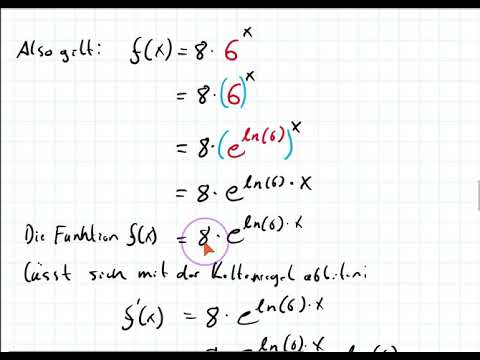 Also gilt: f(x) = 8 · 6^x
= 8 · (6)^x
= 8 · (e^{ln(6)})^x
= 8 · e^{ln(6) · x}
Die Funktion f(x) = 8 · e^{ln(6) · x}
lässt sich mit der Kettenregel ableiten:
f'(x) = 8 · e^{ln(6) · x}